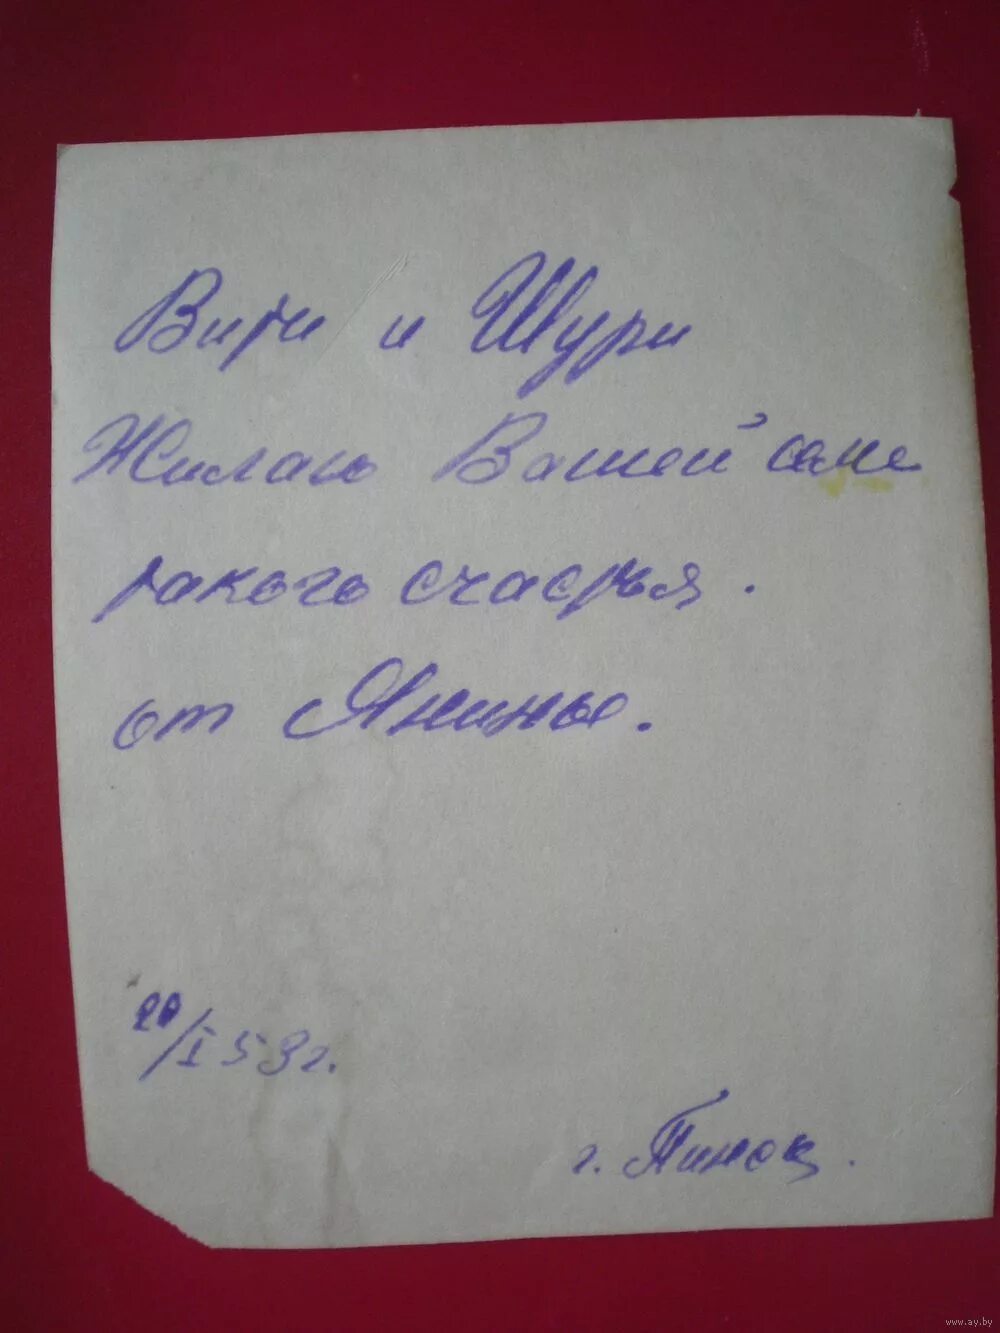 Вити и Шури
Жилаю Вашей семе
такого счастья.
от Янины.
20/I 53г.
г. Пинск.
www.ay.by